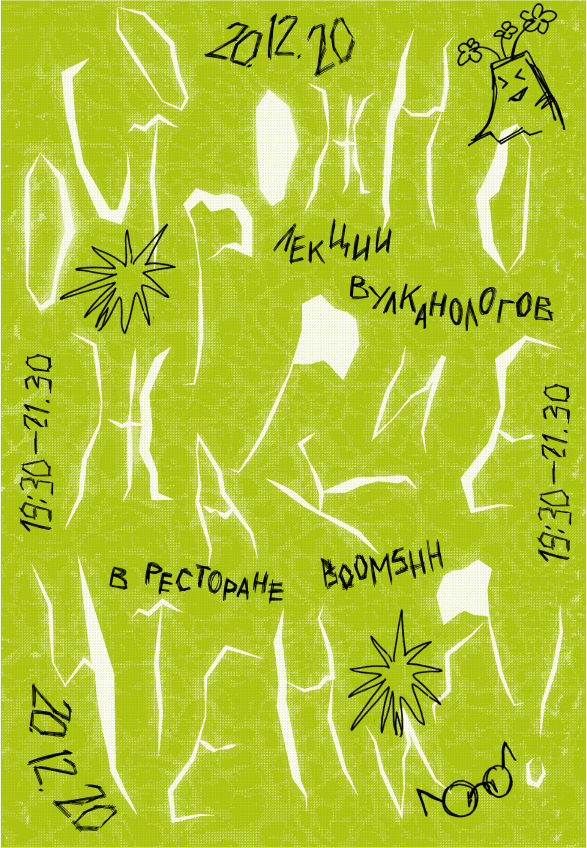 20.12.20
ОСТОРОЖНО
ЛЕКЦИИ
ВУЛКАНОЛОГОВ
19:30—21.30
ЖАРКИЕ
19:30—21.30
В РЕСТОРАНЕ BOOMSHH
ЧТЕНИЯ!
20.12.20